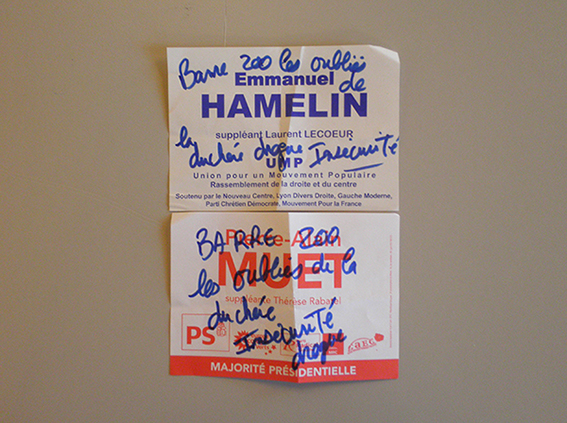 Barre 200 les oubliés
Emmanuel de
HAMELIN
suppléant Laurent LECOEUR
la duchére drogue Insécurité
UMP
Union pour un Mouvement Populaire
Rassemblement de la droite et du centre
Soutenu par le Nouveau Centre, Lyon Divers Droite, Gauche Moderne,
Parti Chrétien Démocrate, Mouvement Pour la France
BARRE 200
Pierre-Alain
MUET
les oubliés de la
suppléante Thérèse Rabatel
duchére
Insécurité
PS
drogue
MAJORITÉ PRÉSIDENTIELLE